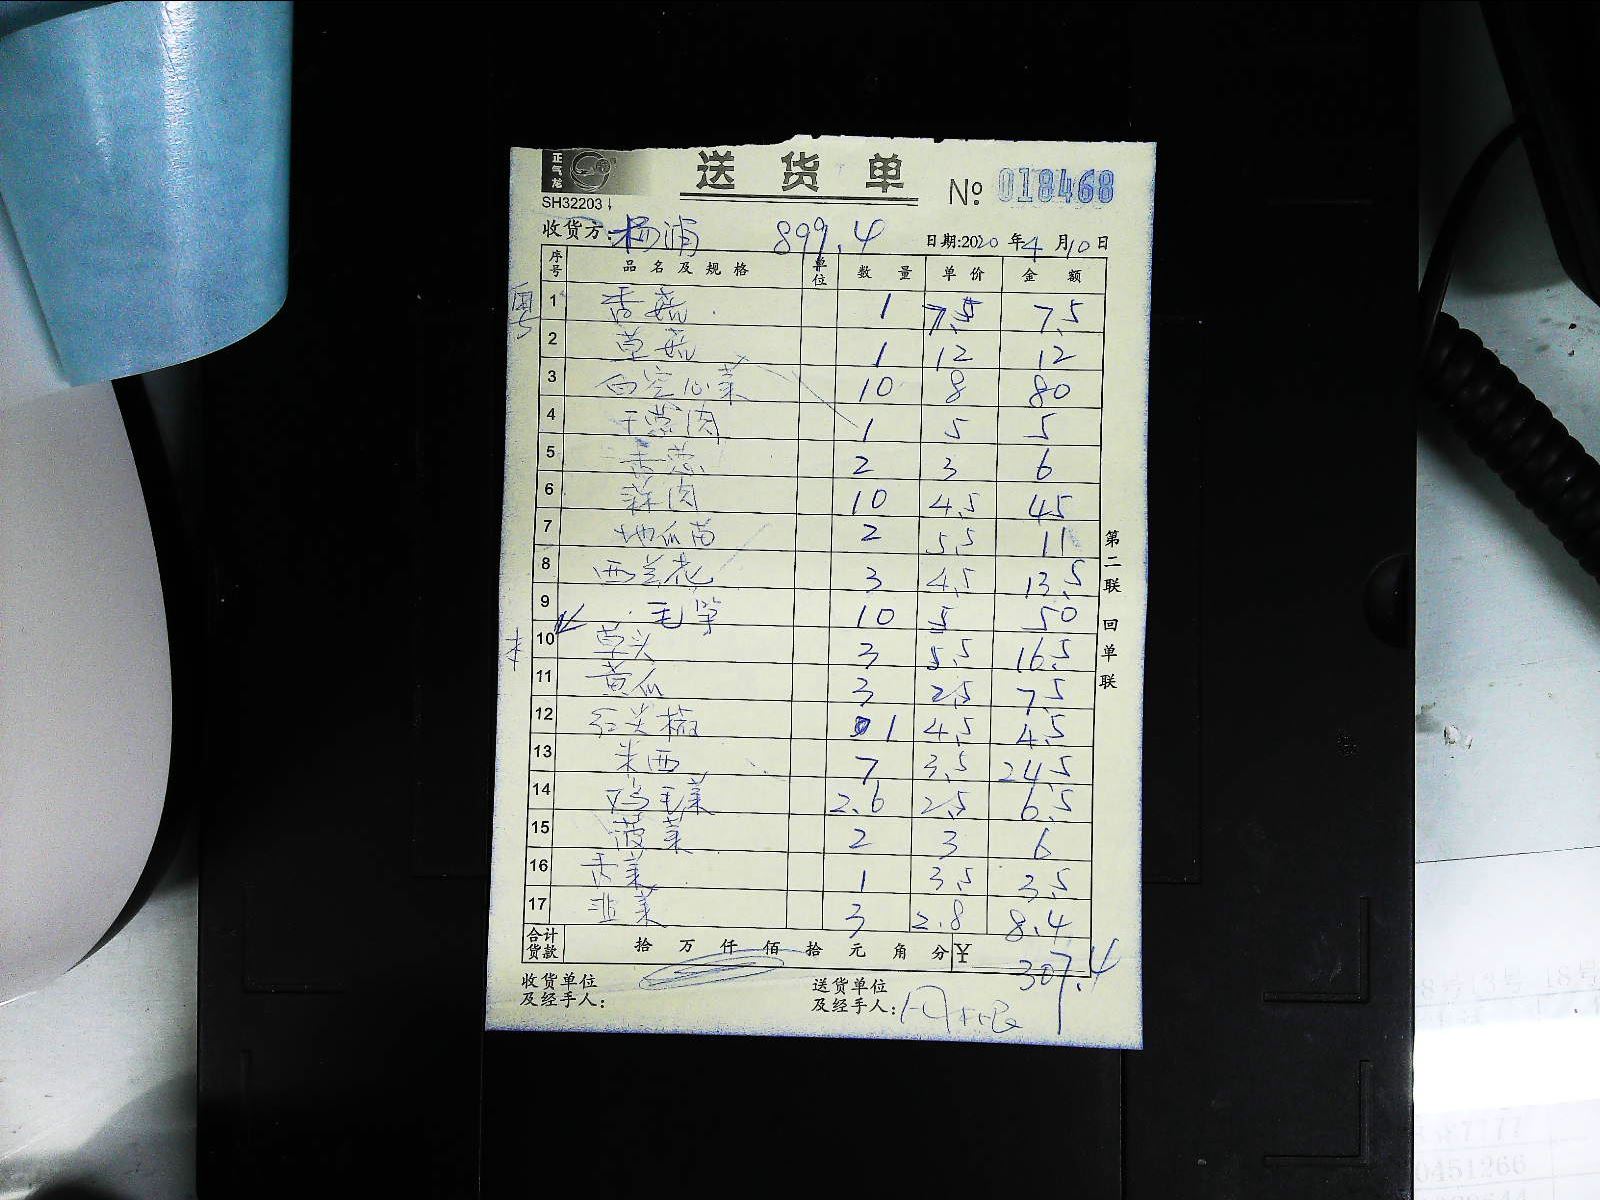 正气龙
送货单
No: 018468
SH32203
收货方: 杨浦 899.4 日期:2020年4月10日
序号 品名及规格 单位 数量 单价 金额
1 香菇 1 7.5 7.5
2 草菇 1 12 12
3 白空心菜 10 8 80
4 干葱肉 1 5 5
5 香葱 2 3 6
6 蒜肉 10 4.5 45
7 地瓜苗 2 5.5 11
8 西兰花 3 4.5 13.5
9 毛笋 10 5 50
10 草头 3 5.5 16.5
11 黄瓜 3 2.5 7.5
12 红尖椒 1 4.5 4.5
13 米西 7 3.5 24.5
14 鸡毛菜 2.6 2.5 6.5
15 菠菜 2 3 6
16 香菜 1 3.5 3.5
17 韭菜 3 2.8 8.4
合计货款 拾万仟佰拾元角分 ¥ 307.4
收货单位及经手人:
送货单位及经手人:
第二联 回单联
0451266